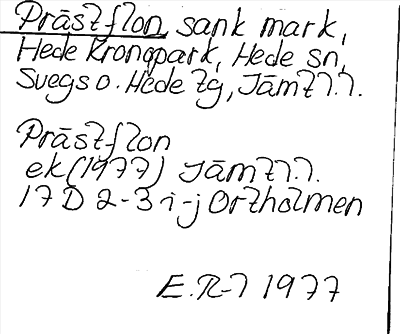 Prästflon sank mark,
Hede Kronopark, Hede sn,
Svegs o. Hede tg, Jämtl.l.
Prästflon
ek (1977) Jämtl.l.
17 D 2-3 i-j Ortholmen
E.R-l 1977